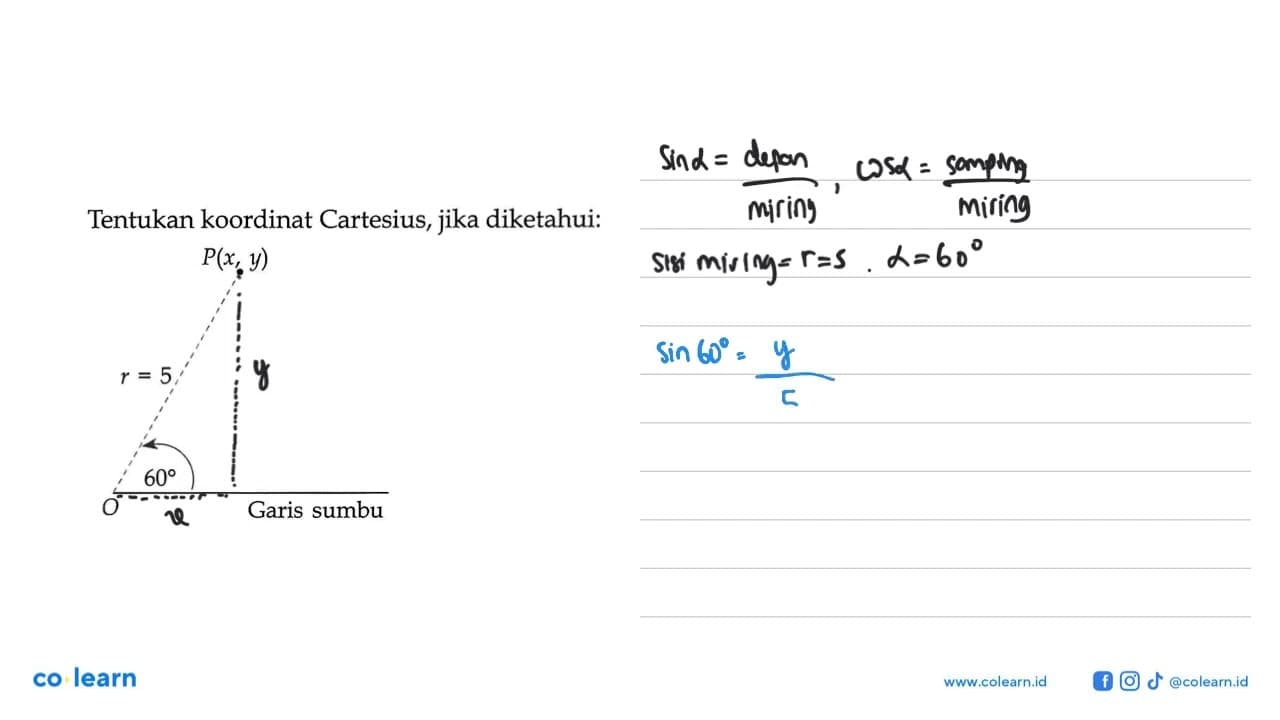 Tentukan koordinat Cartesius, jika diketahui:
P(x, y)
r = 5
y
60°
O
x
Garis sumbu
sin α = depan / miring , cos α = samping / miring
sisi miring = r = 5 . α = 60°
sin 60° = y / 5
co learn
www.colearn.id
@colearn.id